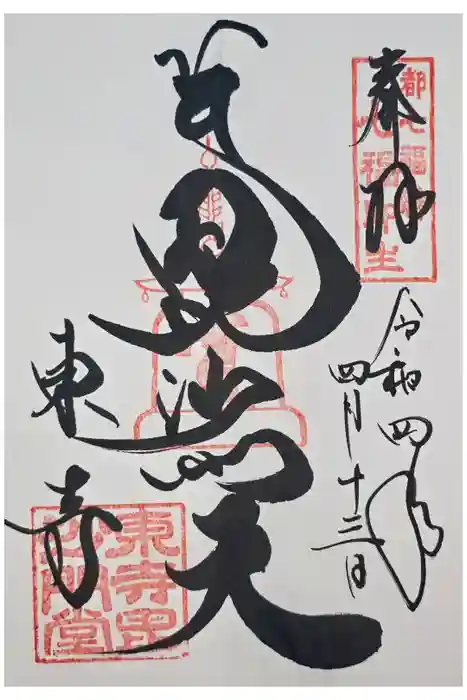 都七福神
奉拝
令和四年
四月十三日
毘沙門天
東寺
東寺毘
沙門堂